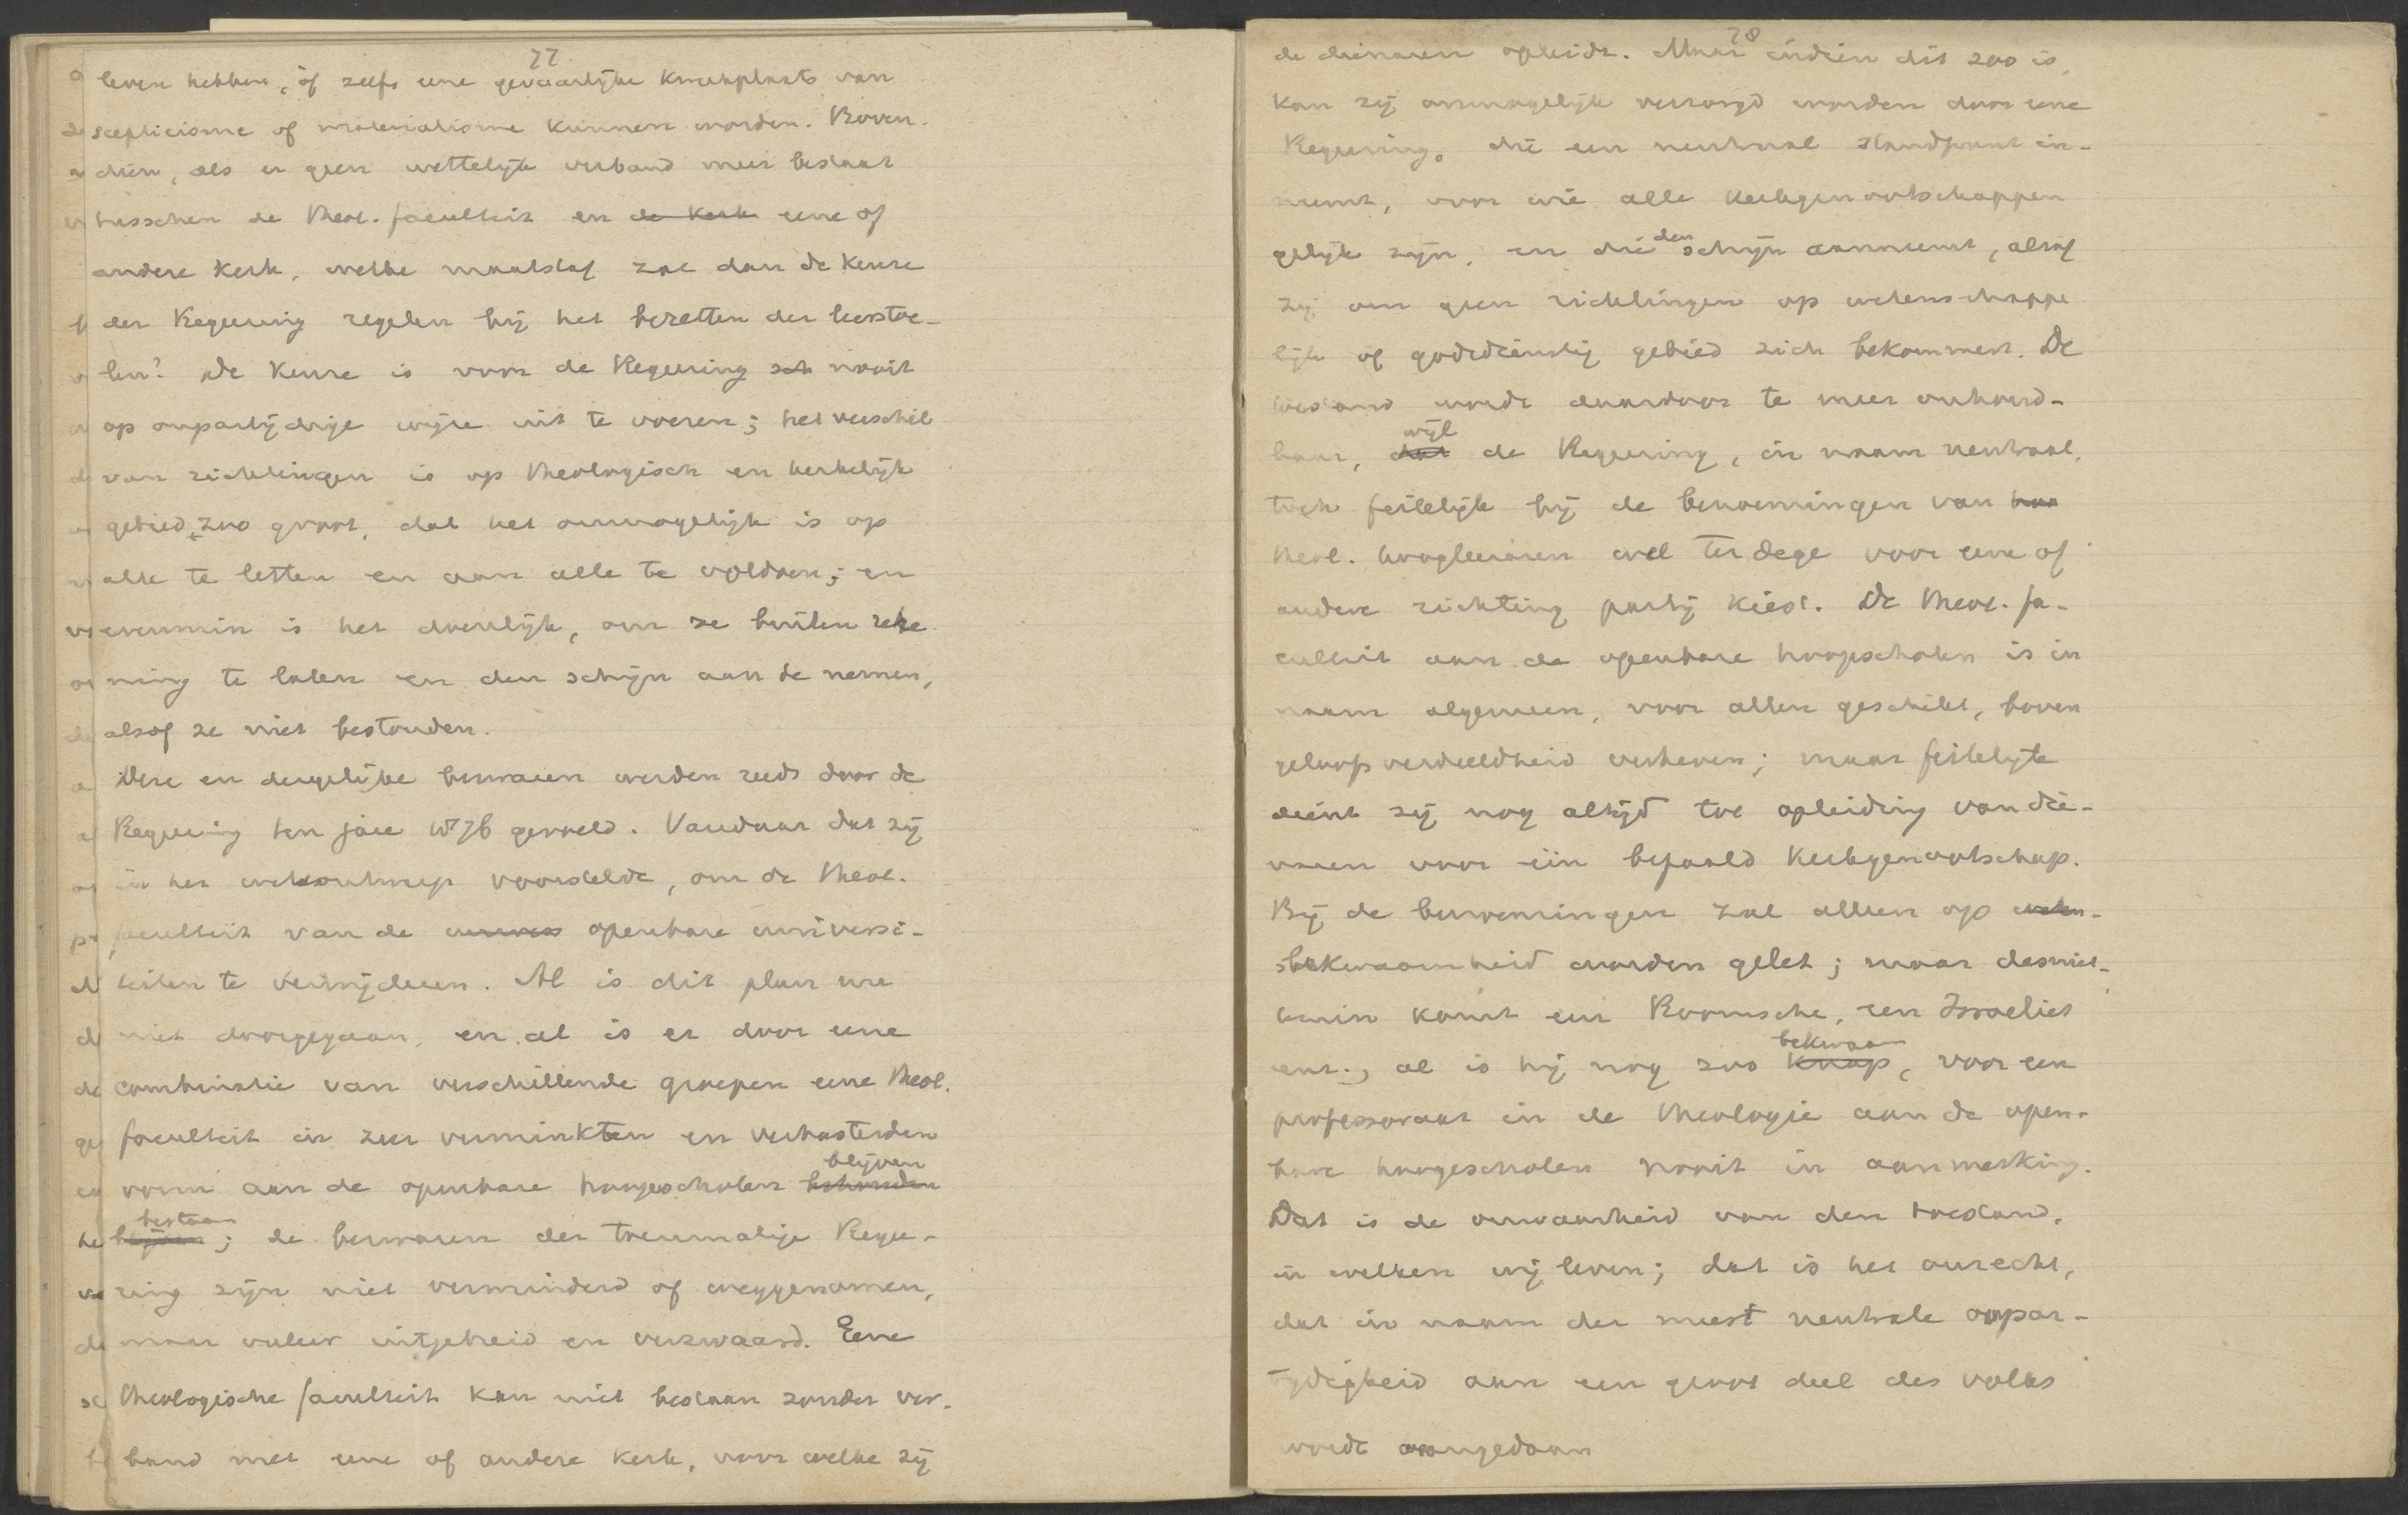 77
leven hebben, òf zelfs eene gevaarlijke kweekplaats van
scepticisme of materialisme kunnen worden. Boven-
dien, als er geen wettelijk verband meer bestaat
tusschen de theol. faculteit en de kerk eene of
andere kerk, welke maatstaf zal dan de keuze
der Regeering regelen bij het bezetten der leerstoe-
len? De keuze is voor de Regeering nooit
op onpartijdige wijze uit te voeren; het verschil
van richtingen is op theologisch en kerkelijk
gebied zoo groot, dat het onmogelijk is op
alle te letten en aan alle te voldoen; en
evenmin is het doenlijk, om ze buiten reke-
ning te laten en den schijn aan te nemen,
alsof ze niet bestonden.
Deze en dergelijke bezwaren werden reeds door de
Regeering ten jare 1876 gevoeld. Vandaar dat zij
in het wetsontwerp voorstelde, om de theol.
faculteit van de openbare universi-
teiten te verwijderen. Al is dit plan
niet doorgegaan, en al is er door eene
combinatie van verschillende groepen eene theol.
faculteit in zeer verminkten en verbasterden
vorm aan de openbare hoogescholen behouden blijven
blijven bestaan; de bezwaren der toenmalige Regee-
ring zijn niet verminderd of weggenomen,
maar veeleer uitgebreid en verzwaard. Eene
theologische faculteit kan niet bestaan zonder ver-
band met eene of andere kerk, voor welke zij
78
de dienaren opleidt. Maar indien dit zoo is,
kan zij onmogelijk verzorgd worden door eene
Regeering, die een neutraal standpunt in-
neemt, voor wie alle kerkgenootschappen
gelijk zijn, en die den schijn aanneemt, alsof
zij om geen richtingen op wetenschappe
lijk of godsdienstig gebied zich bekommert. De
toestand wordt daardoor te meer onhoud-
baar, dat wijl de Regeering, in naam neutraal,
toch feitelijk bij de benoemingen van hoo
theol. hoogleeraren wel ter dege voor eene of
andere richting partij kiest. De theol. fa-
culteit aan de openbare hoogescholen is in
naam algemeen, voor allen geschikt, boven
geloofsverdeeldheid verheven; maar feitelijk
dient zij nog altijd tot opleiding van die-
naren voor één bepaald kerkgenootschap.
Bij de benoemingen zal alleen op weten-
bekwaamheid worden gelet; maar desniet-
temin komt een Roomsche, een Israeliet
enz., al is hij nog zoo knap bekwaam, voor een
professoraat in de theologie aan de open-
bare hoogescholen nooit in aanmerking.
Dat is de onwaarheid van den toestand,
in welken wij leven; dat is het onrecht,
dat in naam der meest neutrale onpar-
tijdigheid aan een groot deel des volks
wordt aangedaan